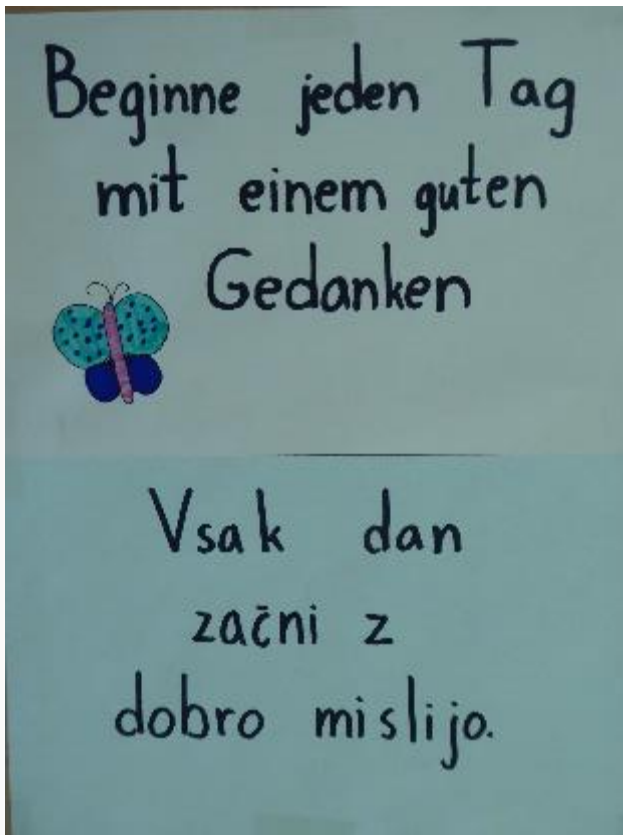 Beginne jeden Tag
mit einem guten
Gedanken
Vsak dan
začni z
dobro mislijo.